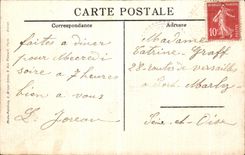 CARTE POSTALE
Correspondance
Adresse
faites a diner
pour Mecredi
soire a 7 heures
bien a vous
L. Joreau
Madame
Catrine Graff
28 route de versailles
a Port Marly
Seine et Oise
10